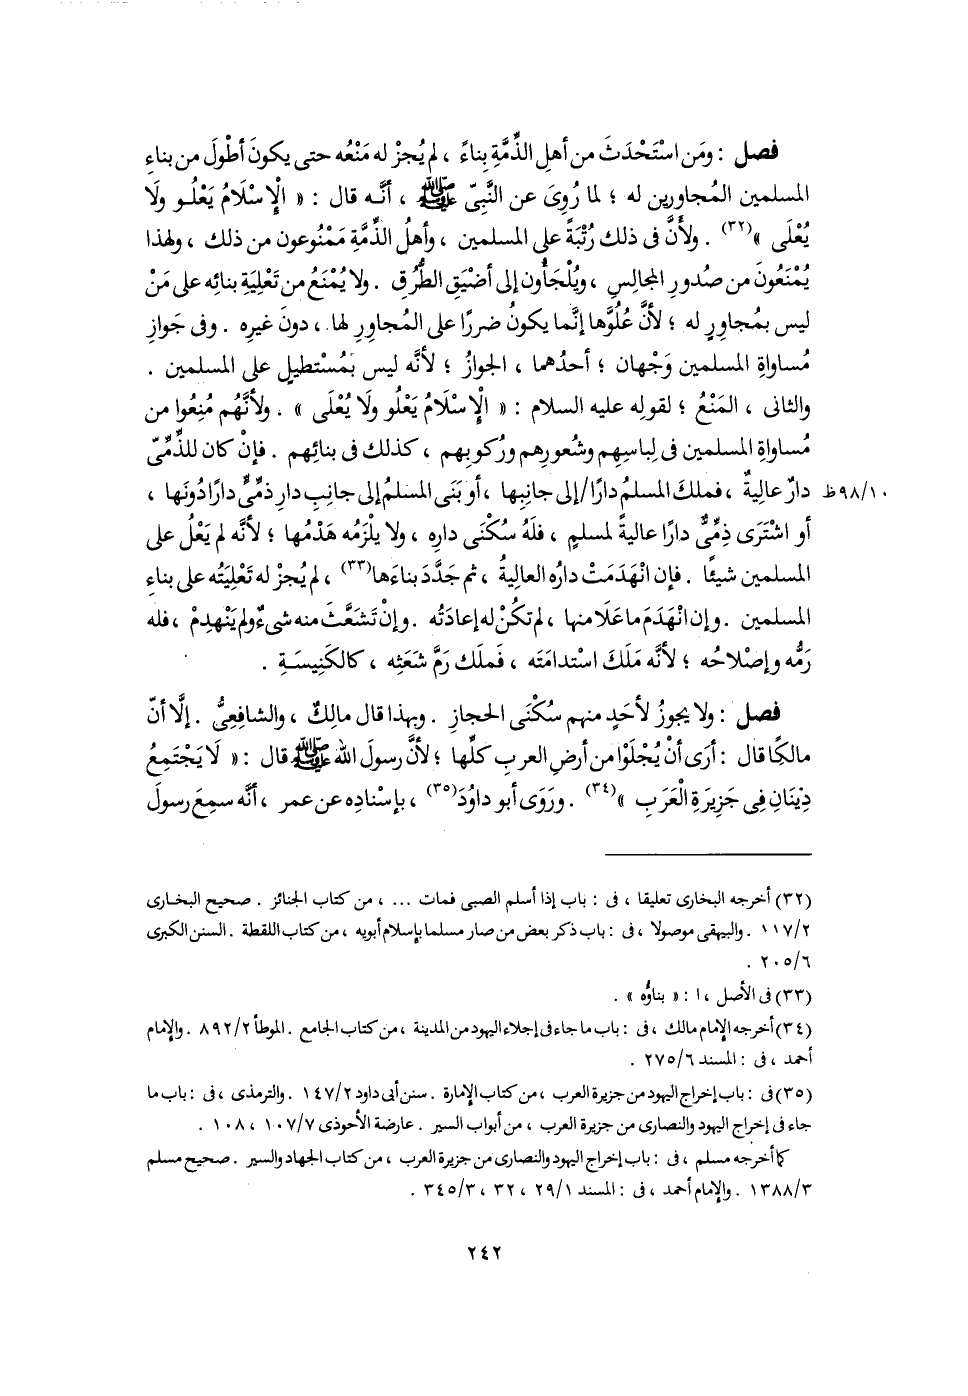 فصل : ومَن اسْتَحْدَثَ من أهلِ الذِّمَّةِ بِناءً ، لم يُجزْ له مَنْعُه حتى يكونَ أطْولَ من بناءِ
المسلمين المُجاورين له ؛ لما رُوِىَ عن النَّبِىِّ ﷺ ، أنَّه قال : « الْإِسْلَامُ يَعْلُو ولَا
يُعْلَى »(٣٢) . ولأنَّ فى ذلك رُتْبَةً على المسلمين ، وأهلُ الذِّمَّةِ مَمْنُوعون من ذلك ، ولهذا
يُمْنَعُونَ من صُدورِ المجالِسِ ، ويُلْجَأُون إلى أضْيَقِ الطُّرُقِ . ولا يُمْنَعُ من تَعْلِيَةِ بنائِه على مَنْ
ليس بمُجاوِرٍ له ؛ لأنَّ عُلُوَّها إنَّما يكونُ ضررًا على المُجاوِرِ لها ، دونَ غيرِه . وفى جَوازِ
مُساواةِ المسلمين وَجْهان ؛ أحدُهما ، الجوازُ ؛ لأنَّه ليس بمُسْتطيلٍ على المسلمين .
والثانى ، المَنْعُ ؛ لقولِه عليه السلام : « الْإِسْلَامُ يَعْلُو ولَا يُعْلَى » . ولأنَّهم مُنِعُوا من
مُساواةِ المسلمين فى لِباسِهم وشُعورِهم ورُكوبِهم ، كذلك فى بنائِهم . فإنْ كان للذِّمِّىِّ
دارٌ عالِيةٌ ، فملكَ المسلمُ دارًا/إلى جانِبِها ، أو بَنَى المسلمُ إلى جانِبِ دارِ ذِمِّىٍّ دارًا دُونَها ، ٩٨/١٠ظ
أو اشْتَرَى ذِمِّىٌّ دارًا عاليةً لمسلمٍ ، فلَهُ سُكْنَى دارِه ، ولا يلْزَمُه هَدْمُها ؛ لأنَّه لم يَعْلُ على
المسلمين شيئًا . فإن انْهَدَمَتْ دارُه العاليةُ ، ثم جَدَّدَ بناءَها(٣٣) ، لم يُجزْ له تَعْلِيَتُه على بناءِ
المسلمين . وإن انْهَدَمَ ما عَلَا منها ، لم تكُنْ له إعادَتُه . وإنْ تَشَعَّثَ منه شىءٌ ولم يَنْهدِمْ ، فله
رَمُّه وإصْلاحُه ؛ لأنَّه مَلَكَ اسْتدامَتَه ، فَملَك رَمَّ شَعَثِه ، كالكَنِيسَةِ .
فصل : ولا يجوزُ لأحَدٍ منهم سُكْنَى الحجازِ . وبهذا قال مالِكٌ ، والشافِعِىُّ . إلَّا أنّ
مالكًا قال : أرَى أنْ يُجْلَوْا من أرضِ العربِ كلِّها ؛ لأنَّ رسولَ الله ﷺ قال : « لَا يَجْتَمِعُ
دِينَانِ فِى جَزِيرَةِ الْعَرَبِ »(٣٤) . ورَوَى أبو داوُدَ(٣٥) ، بإسْنادِه عن عمر ، أنَّه سمِعَ رسولَ
(٣٢) أخرجه البخارى تعليقا ، فى : باب إذا أسلم الصبى فمات ... ، من كتاب الجنائز . صحيح البخارى
١١٧/٢ . والبيهقى موصولا ، فى : باب ذكر بعض من صار مسلما بإسلام أبويه ، من كتاب اللقطة . السنن الكبرى
٢٠٥/٦ .
(٣٣) فى الأصل ، ا : « بناؤه » .
(٣٤) أخرجه الإمام مالك ، فى : باب ما جاء فى إجلاء اليهود من المدينة ، من كتاب الجامع . الموطأ ٨٩٢/٢ . والإمام
أحمد ، فى : المسند ٢٧٥/٦ .
(٣٥) فى : باب إخراج اليهود من جزيرة العرب ، من كتاب الإمارة . سنن أبى داود ١٤٧/٢ . والترمذى ، فى : باب ما
جاء فى إخراج اليهود والنصارى من جزيرة العرب ، من أبواب السير . عارضة الأحوذى ١٠٧/٧ ، ١٠٨ .
كما أخرجه مسلم ، فى : باب إخراج اليهود والنصارى من جزيرة العرب ، من كتاب الجهاد والسير . صحيح مسلم
١٣٨٨/٣ . والإمام أحمد ، فى : المسند ٢٩/١ ، ٣٢ ، ٣٤٥/٣ .
٢٤٢